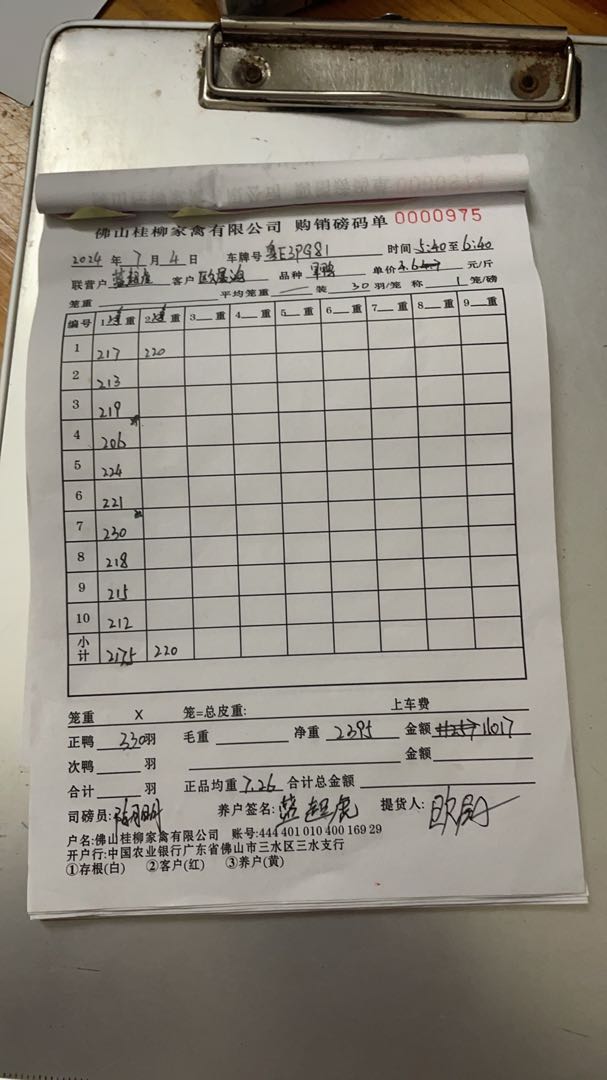 佛山桂柳家禽有限公司 购销磅码单 0000975
2024 年 7 月 4 日 车牌号 粤E3PG81 时间 5:40 至 6:40
联营户 蓝超虎 客户 品种 单价 元/斤
笼重 平均笼重 装 30 羽/笼 称 1 笼/磅
编号 1 重 2 重 3 重 4 重 5 重 6 重 7 重 8 重 9 重
1 217 220
2 213
3 219
4 206
5 224
6 221
7 230
8 218
9 215
10 212
小计 2175 220
笼重 X 笼=总皮重: 上车费
正鸭 330 羽 毛重 净重 2395 金额 11017
次鸭 羽 金额
合计 羽 正品均重 7.26 合计总金额
司磅员: 养户签名: 蓝超虎 提货人:
户名:佛山桂柳家禽有限公司 账号:444 401 010 400 169 29
开户行:中国农业银行广东省佛山市三水区三水支行
①存根(白) ②客户(红) ③养户(黄)